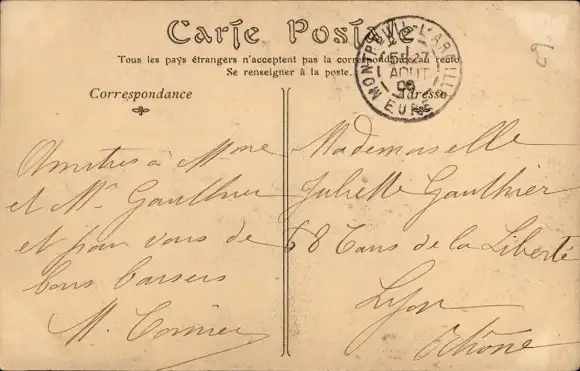 Carte Postale
Tous les pays étrangers n'acceptent pas la correspondance au recto
Se renseigner à la poste.
Correspondance
Adresse
MONTREUIL-L'ARGILLÉ
27
AOUT
EURE
Amitiés à Mme
et Mr Gauthier
et pour vous de
bons baisers
M.
Mademoiselle
Juliette Gauthier
68 Cours de la Liberté
Lyon
Rhône